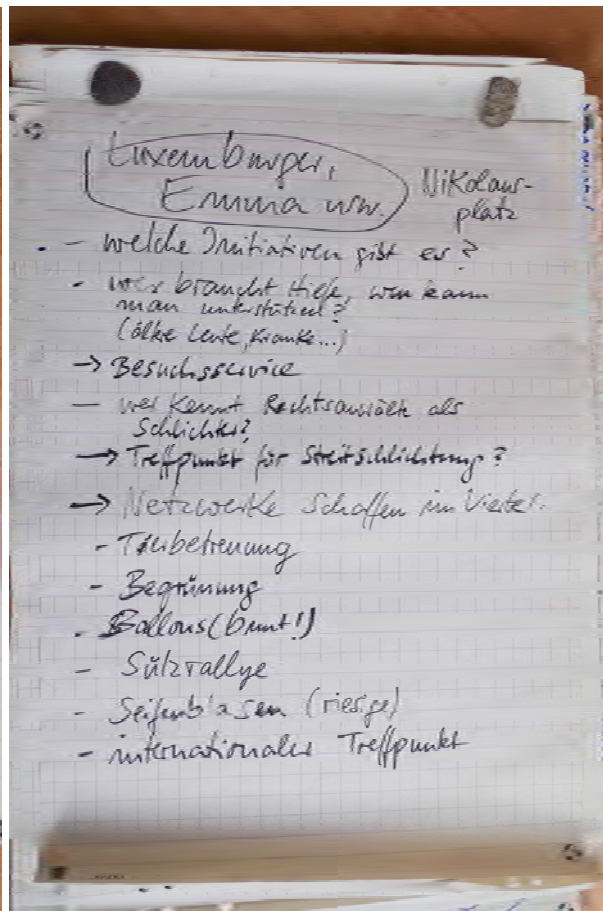 Luxemburger,
Emma usw.
Nikolaus-
platz
- welche Initiativen gibt es?
- wer braucht Hilfe, wen kann
man unterstützen?
(ältere Leute, Kranke...)
→ Besuchsservice
- wer kennt Rechtsanwälte als
Schlichter?
→ Treffpunkt für Streitschlichtung?
→ Netzwerke schaffen im Viertel.
- Tierbetreuung
- Begrünung
- Ballons (bunt!)
- Sülzrallye
- Seifenblasen (riesige)
- internationaler Treffpunkt